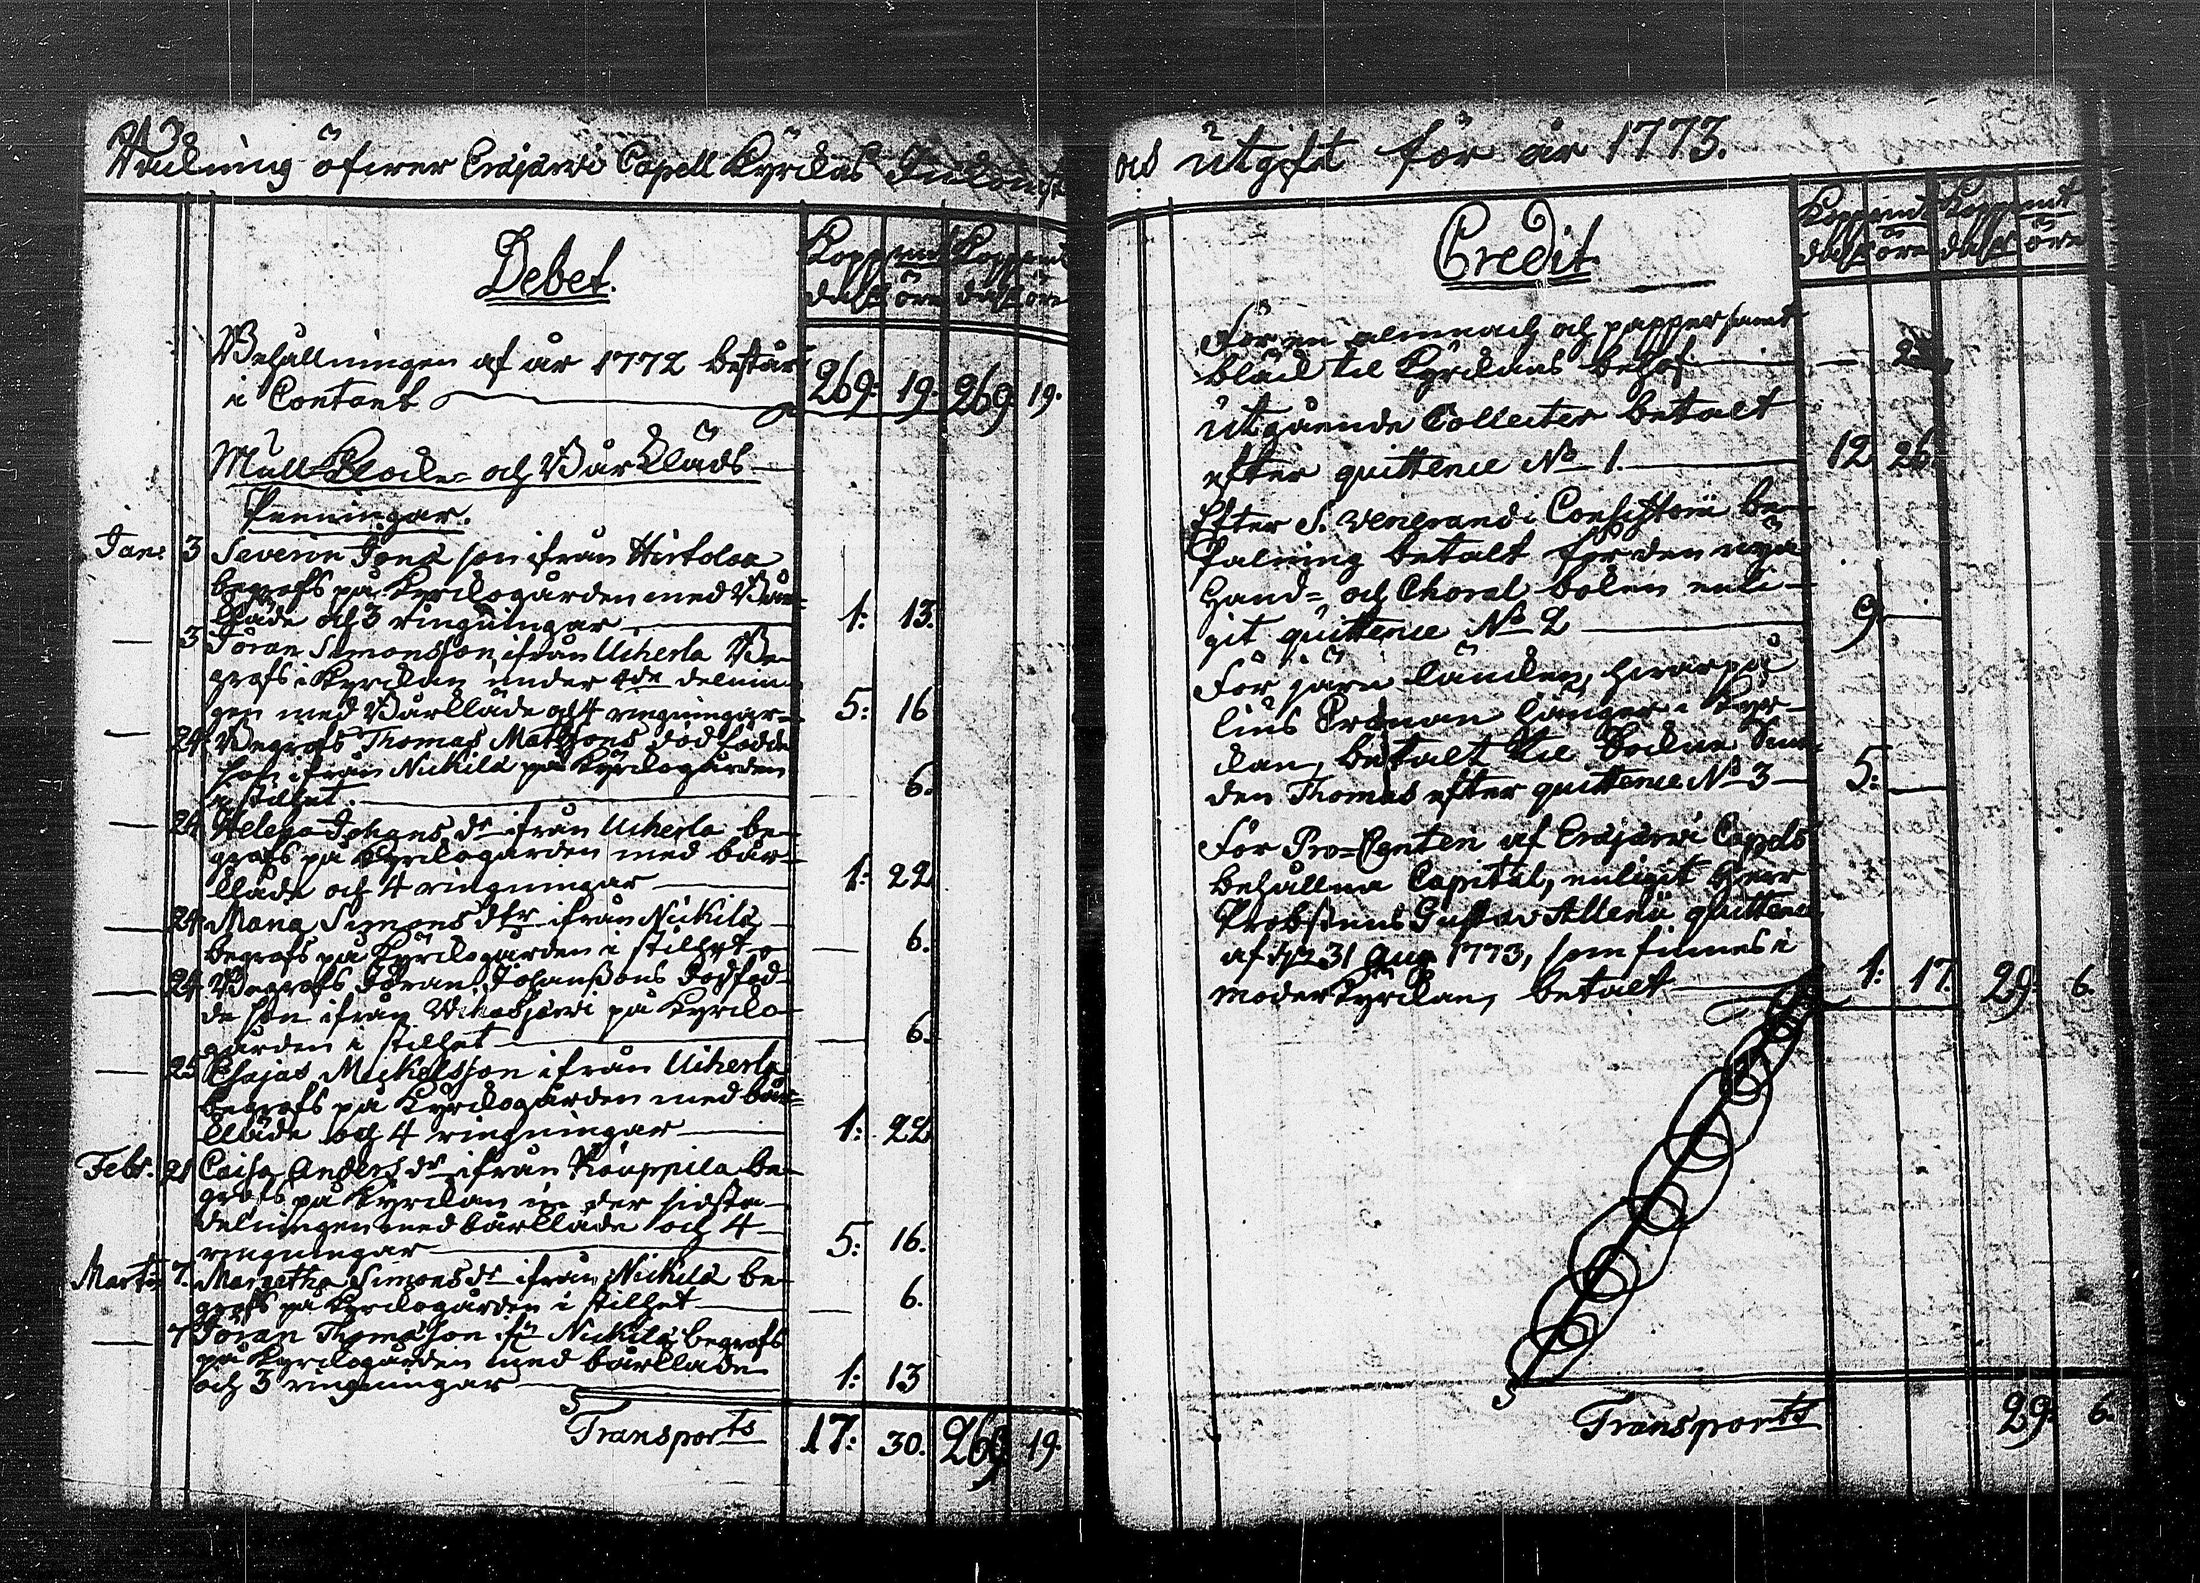 Räkning öfwer Eräjärwi Capell Kyrckas Inkomst
Debet.
Kopparmt Kopparmt
dalr öre dalr öre
Behållningen af år 1772 består
i Contant 269: 19. 269 19.
Mull- Klocke- och Bårkläds-
Penningar.
Jan: 3 Severin Jöns son ifrån Hirtolaa
begrofs på Kyrckogården med Bår-
kläde och 3 ringningar 1: 13.
— 3 Jöran Simonsson ifrån Uiherla Be-
grofs i Kyrckan under 4de delnin-
gen med Bårkläde och 4 ringningar 5: 16
— 24 Begrofs Thomas Matssons dödfödde
son ifrån Nickilä på Kyrckogården
i stillhet. 6.
— 24 Helena Johans dr ifrån Uiherla be-
grofs på Kyrckogården med bår-
kläde och 4 ringningar 1: 22
— 24 Maria Simons dtr ifrån Nickilä
begrofs på Kyrckogården i stillhet — 6.
— 24 Begrofs Jöran Johanssons dödföd-
de son ifrån Wihasjärvi på Kyrcko-
gården i stillhet — 6.
— 25 Esajas Mickelsson ifrån Uiherla
begrofs på Kyrckogården med bår-
kläde och 4 ringningar 1: 22
Febr. 21 Caisa Anders dr ifrån Kauppila be-
grofs på Kyrckan under sidsta
delningen med bårkläde och 4
ringningar 5: 16.
Marti 7. Margetha Simons dr ifrån Nickilä be-
grofs på Kyrckogården i stillhet — 6.
— 7 Jöran Thomasson ifrn Nickilä begrofs
på Kyrckogården med bårkläde
och 3 ringningar 1: 13
Transports 17: 30. 269 19.
och utgift för år 1773.
Credit
Kopparmt Kopparmt
dalr öre dalr öre
För en almnach och papper samt
bläck til Kyrckans behof —
Utgående Collecter betalt
efter quittence No 1. 12 26.
Efter S. Venerandi Consistorii be-
falning betalt för den nya
Hand- och Choral boken enli-
git quittence No 2 9. —
För järn läncken, hwarpå
lius Cronan hänger i Kyr-
ckan, betalt til Sockne Sme-
den Thomas efter quittence No 3 5: —
För Pro-Centen af Eräjärwi Capels
behållna Capital, enligit Herr
Probstens Gustav Allenii quittence
af d. 31 Aug 1773, som finnes i
moderkyrckan, betalt 1: 17. 29: 6.
Transports 29: 6.